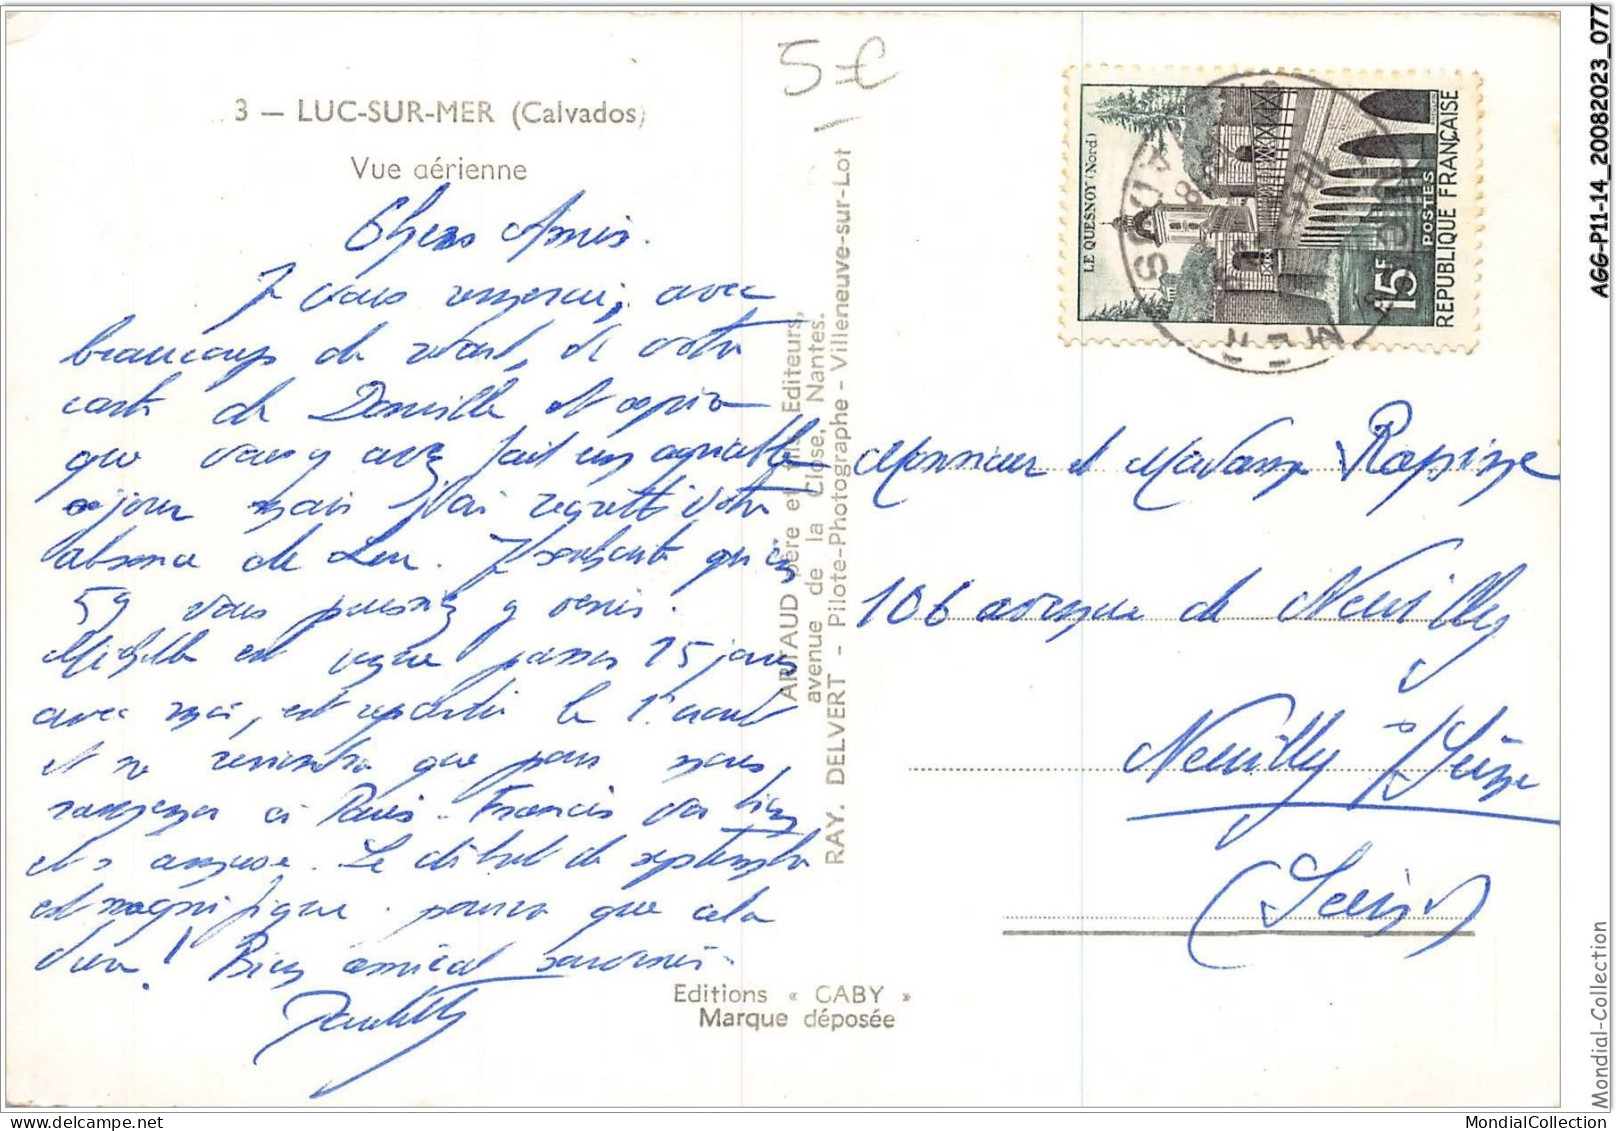 5€
3 — LUC-SUR-MER (Calvados)
Vue aérienne
Chers Amis.
Je vous remercie, avec
beaucoup de retard, de votre
carte de Donville et espère
que vous y avez fait un agréable
séjour mais j'ai regretté votre
absence de Luc. Je souhaite qu'en
59 vous puissiez y venir.
Michelle est venue passer 15 jours
avec moi, est repartie le 1er août
et ne reviendra que pour nous
ramener à Paris. Francis va bien
et s'amuse. Le début de septembre
est magnifique. pourvu que cela
dure ! Bien amical souvenir.
ARTAUD père et fils, Editeurs,
avenue de la Close, Nantes.
RAY. DELVERT - Pilote-Photographe - Villeneuve-sur-Lot
Editions « GABY »
Marque déposée
LE QUESNOY (Nord)
15F
POSTES
REPUBLIQUE FRANÇAISE
LUC S MER
CALVADOS
Monsieur et Madame
106 avenue de Neuilly
Neuilly s/Seine
(Seine)
AGG-P11-14_20082023_077
Mondial-Collection
MondialCollection